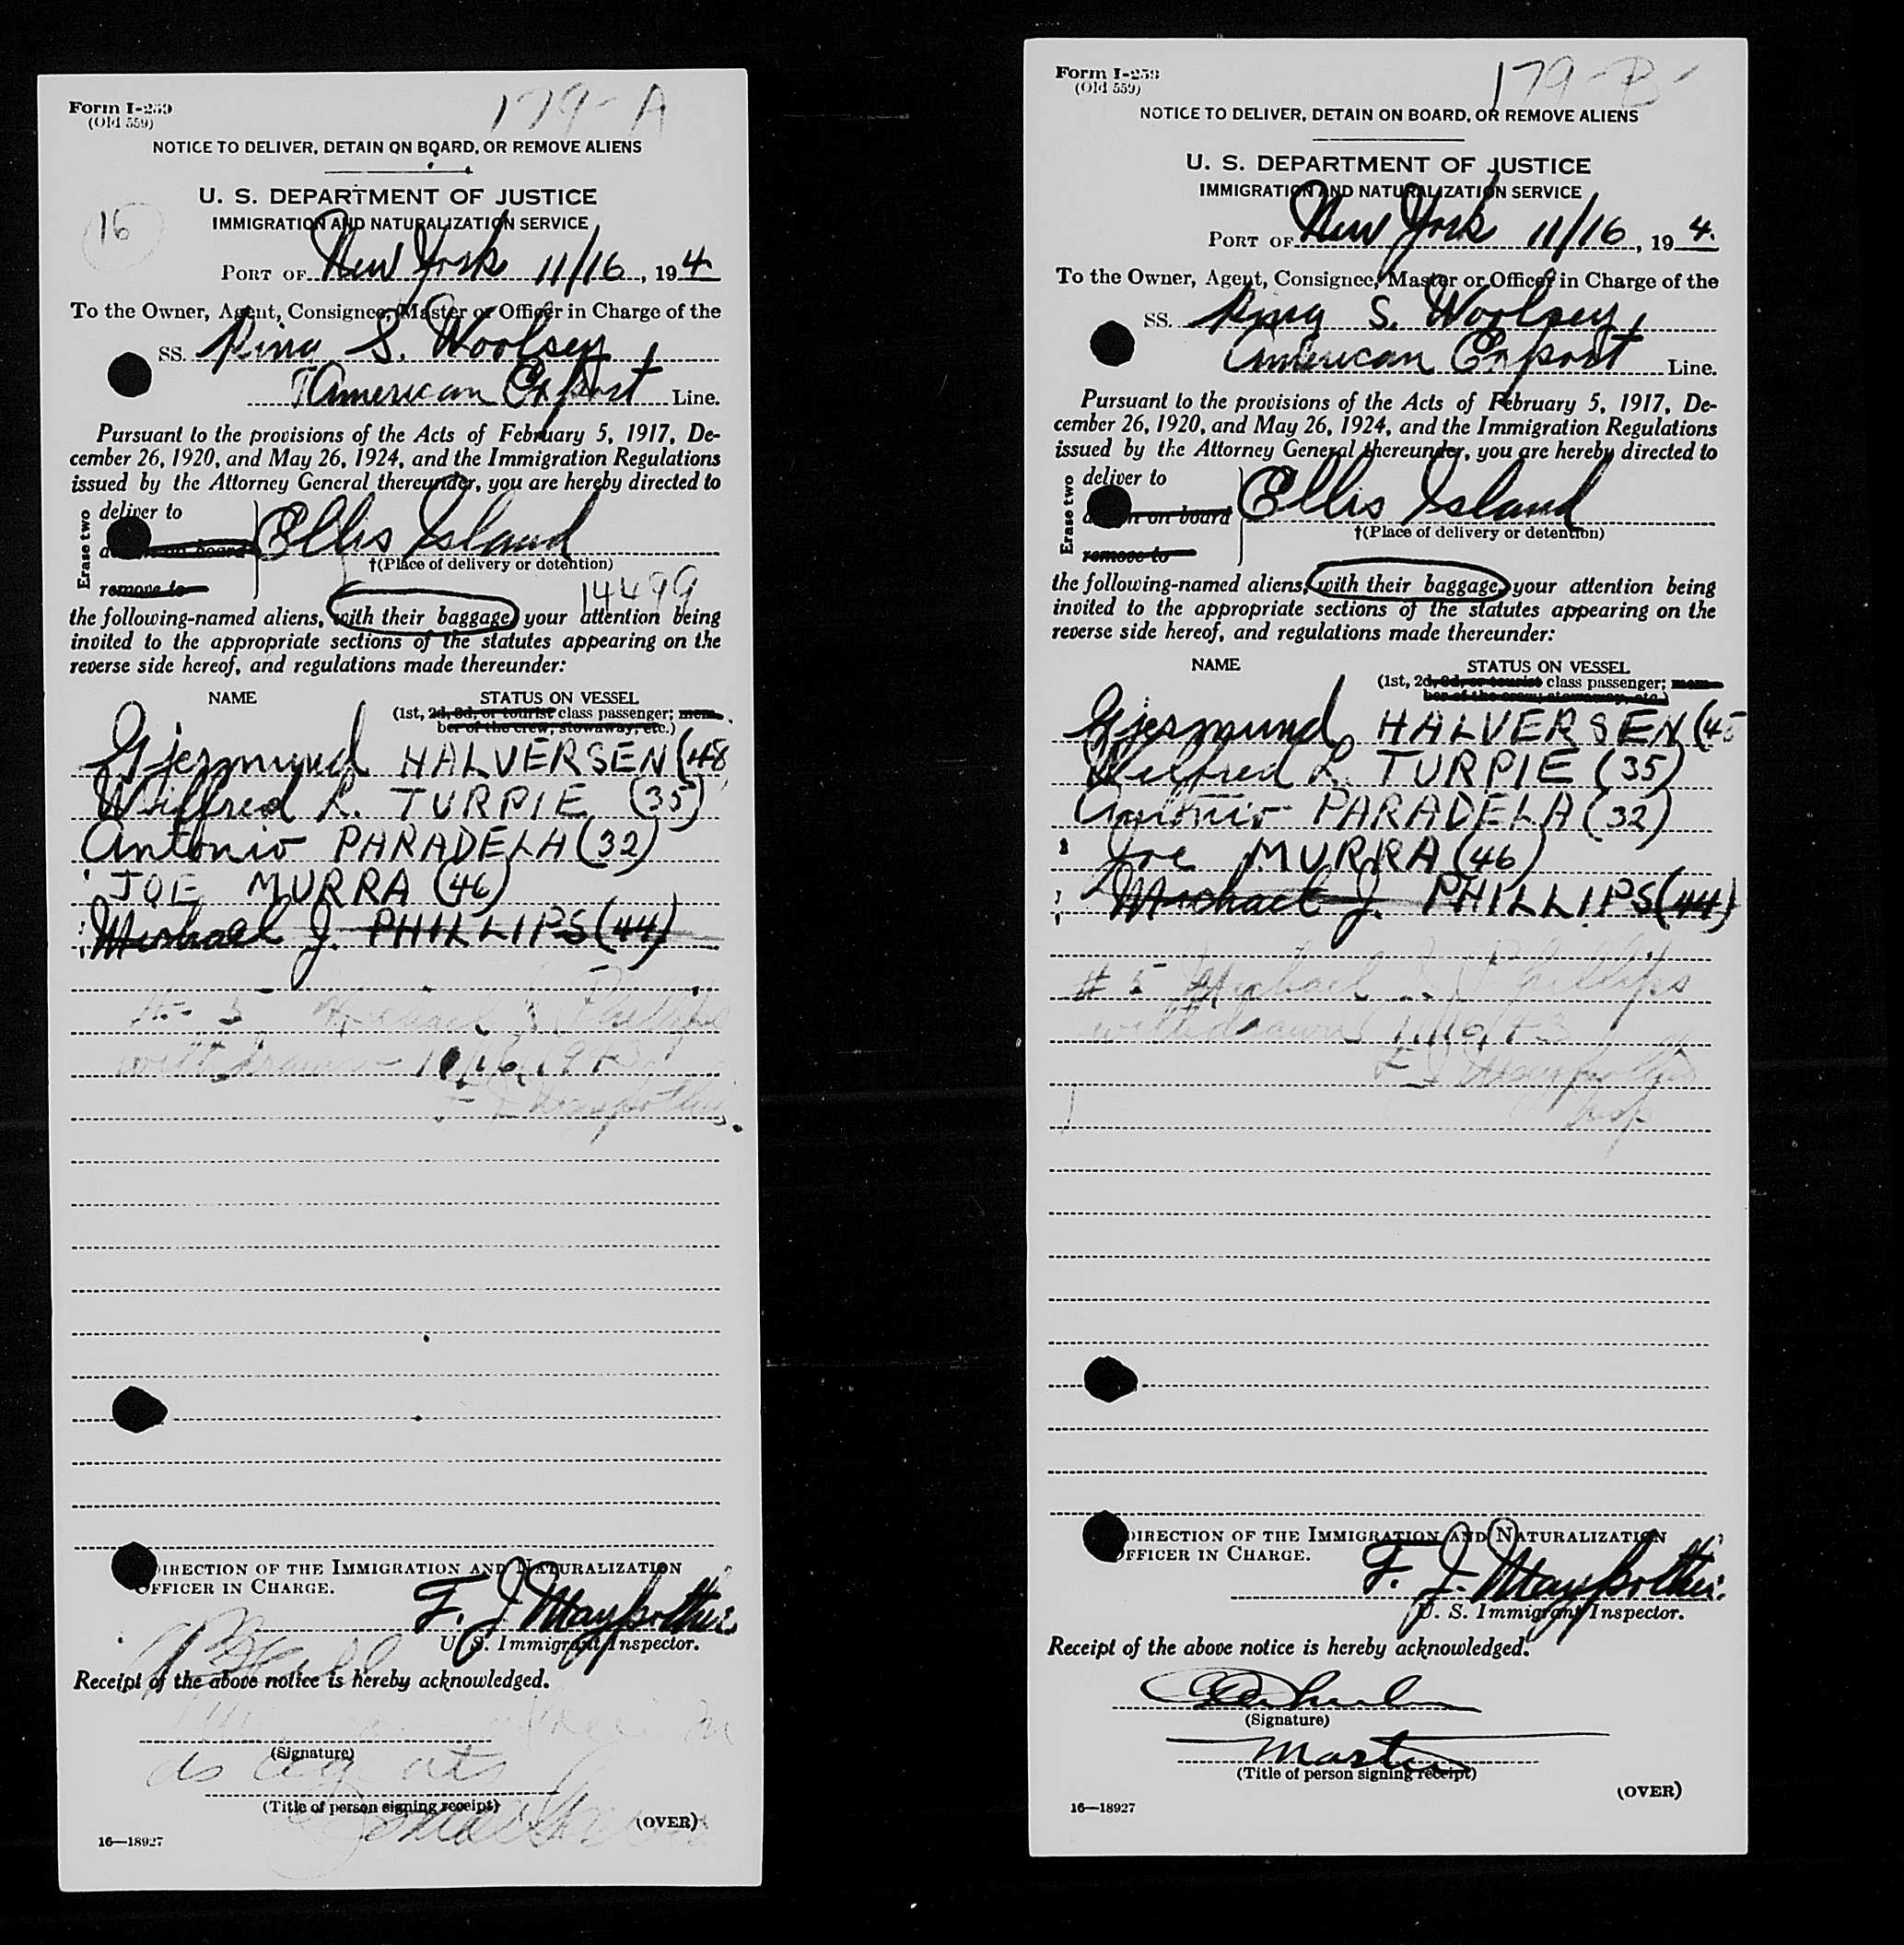 179-A
Form I-259
(Old 559)
NOTICE TO DELIVER, DETAIN ON BOARD, OR REMOVE ALIENS
U. S. DEPARTMENT OF JUSTICE
IMMIGRATION AND NATURALIZATION SERVICE
16
PORT OF New York 11/16, 194
To the Owner, Agent, Consignee, Master or Officer in Charge of the
SS. King S. Woolsey,
American Export Line.
Pursuant to the provisions of the Acts of February 5, 1917, De-
cember 26, 1920, and May 26, 1924, and the Immigration Regulations
issued by the Attorney General thereunder, you are hereby directed to
Erase two
deliver to
on board
remove to
Ellis Island
†(Place of delivery or detention)
14499
the following-named aliens, with their baggage, your attention being
invited to the appropriate sections of the statutes appearing on the
reverse side hereof, and regulations made thereunder:
NAME STATUS ON VESSEL
(1st, 2d, 3d, or tourist class passenger; mem-
ber of the crew, stowaway, etc.)
Gjermund HALVERSEN (48
Wilfred R. TURPIE (35)
Antonio PARADELA (32)
JOE MURRA (46)
Michael J. PHILLIPS (44)
# 5 Michael J Phillips
withdrawn 11/16/43
DIRECTION OF THE IMMIGRATION AND NATURALIZATION
OFFICER IN CHARGE.
F. J. Maypother
U. S. Immigrant Inspector.
Receipt of the above notice is hereby acknowledged.
(Signature)
as agents
(Title of person signing receipt)
(OVER)
16—18927
179-B
Form I-259
(Old 559)
NOTICE TO DELIVER, DETAIN ON BOARD, OR REMOVE ALIENS
U. S. DEPARTMENT OF JUSTICE
IMMIGRATION AND NATURALIZATION SERVICE
PORT OF New York 11/16, 194.
To the Owner, Agent, Consignee, Master or Officer in Charge of the
SS. King S. Woolsey,
American Export Line.
Pursuant to the provisions of the Acts of February 5, 1917, De-
cember 26, 1920, and May 26, 1924, and the Immigration Regulations
issued by the Attorney General thereunder, you are hereby directed to
Erase two
deliver to
on board
remove to
Ellis Island
†(Place of delivery or detention)
the following-named aliens, with their baggage, your attention being
invited to the appropriate sections of the statutes appearing on the
reverse side hereof, and regulations made thereunder:
NAME STATUS ON VESSEL
(1st, 2d, 3d, or tourist class passenger; mem-
ber of the crew, stowaway, etc.)
Gjermund HALVERSEN (48
Wilfred R. TURPIE (35)
Antonio PARADELA (32)
Joe MURRA (46)
Michael J. PHILLIPS (44)
# 5 Michael J. Phillips
withdrawn 11/16/43
F J Maypother
Insp
DIRECTION OF THE IMMIGRATION AND NATURALIZATION
OFFICER IN CHARGE.
F. J. Maypother
U. S. Immigrant Inspector.
Receipt of the above notice is hereby acknowledged.
(Signature)
Master
(Title of person signing receipt)
(OVER)
16—18927